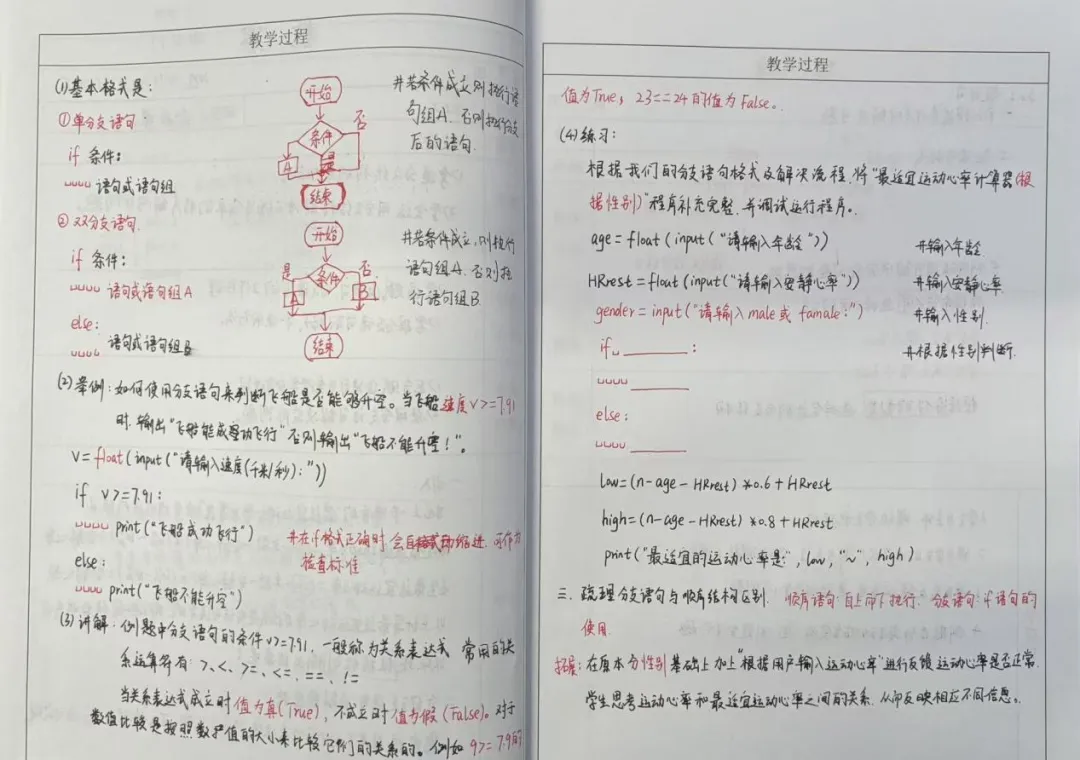 教学过程
(1)基本格式是:
①单分支语句
if 条件:
语句或语句组
开始
条件
否
是
A
结束
#若条件成立则执行语
句组A.否则执行分支
后的语句.
②双分支语句.
if 条件:
语句或语句组A
else:
语句或语句组B
开始
条件
是
否.
A
B
结束
#若条件成立,则执行
语句组A.否则执
行语句组B
(2)举例:如何使用分支语句来判断飞船是否能够升空。当飞船速度v>=7.91
时.输出"飞船能成功飞行"否则输出"飞船不能升空!"。
v=float(input("请输入速度(千米/秒):"))
if v>=7.91:
print("飞船成功飞行")
#在if格式正确时会自动缩进.可作为
检查标准
else:
print("飞船不能升空")
(3)讲解:例题中分支语句的条件v>=7.91,一般称为关系表达式 常用的关
系运算符有:>、<、>=、<=、==、!=
当关系表达式成立时值为真(True),不成立时值为假(False)。对于
数值比较是按照数值的大小来比较它们的关系的。例如9>=7.9的
教学过程
值为True;23==24的值为False。
(4)练习:
根据我们的分支语句格式及解决流程.将"最适宜运动心率计算器(根
据性别)"程序补充完整.并调试运行程序。
age=float(input("请输入年龄"))
#输入年龄
HRrest=float(input("请输入安静心率"))
#输入安静心率
gender=input("请输入male或famale:")
#输入性别.
if ______:
#根据性别判断.
______
else:
______
low=(n-age-HRrest)*0.6+HRrest
high=(n-age-HRrest)*0.8+HRrest
print("最适宜的运动心率是",low,"~",high)
三.梳理分支语句与顺序结构区别. 顺序语句:自上而下执行.分支语句:if语句的
使用.
拓展:在原本分性别基础上加上"根据用户输入运动心率"进行反馈运动心率是否正常.
学生思考运动心率和最适宜运动心率之间的关系.从而反映相应不同信息。